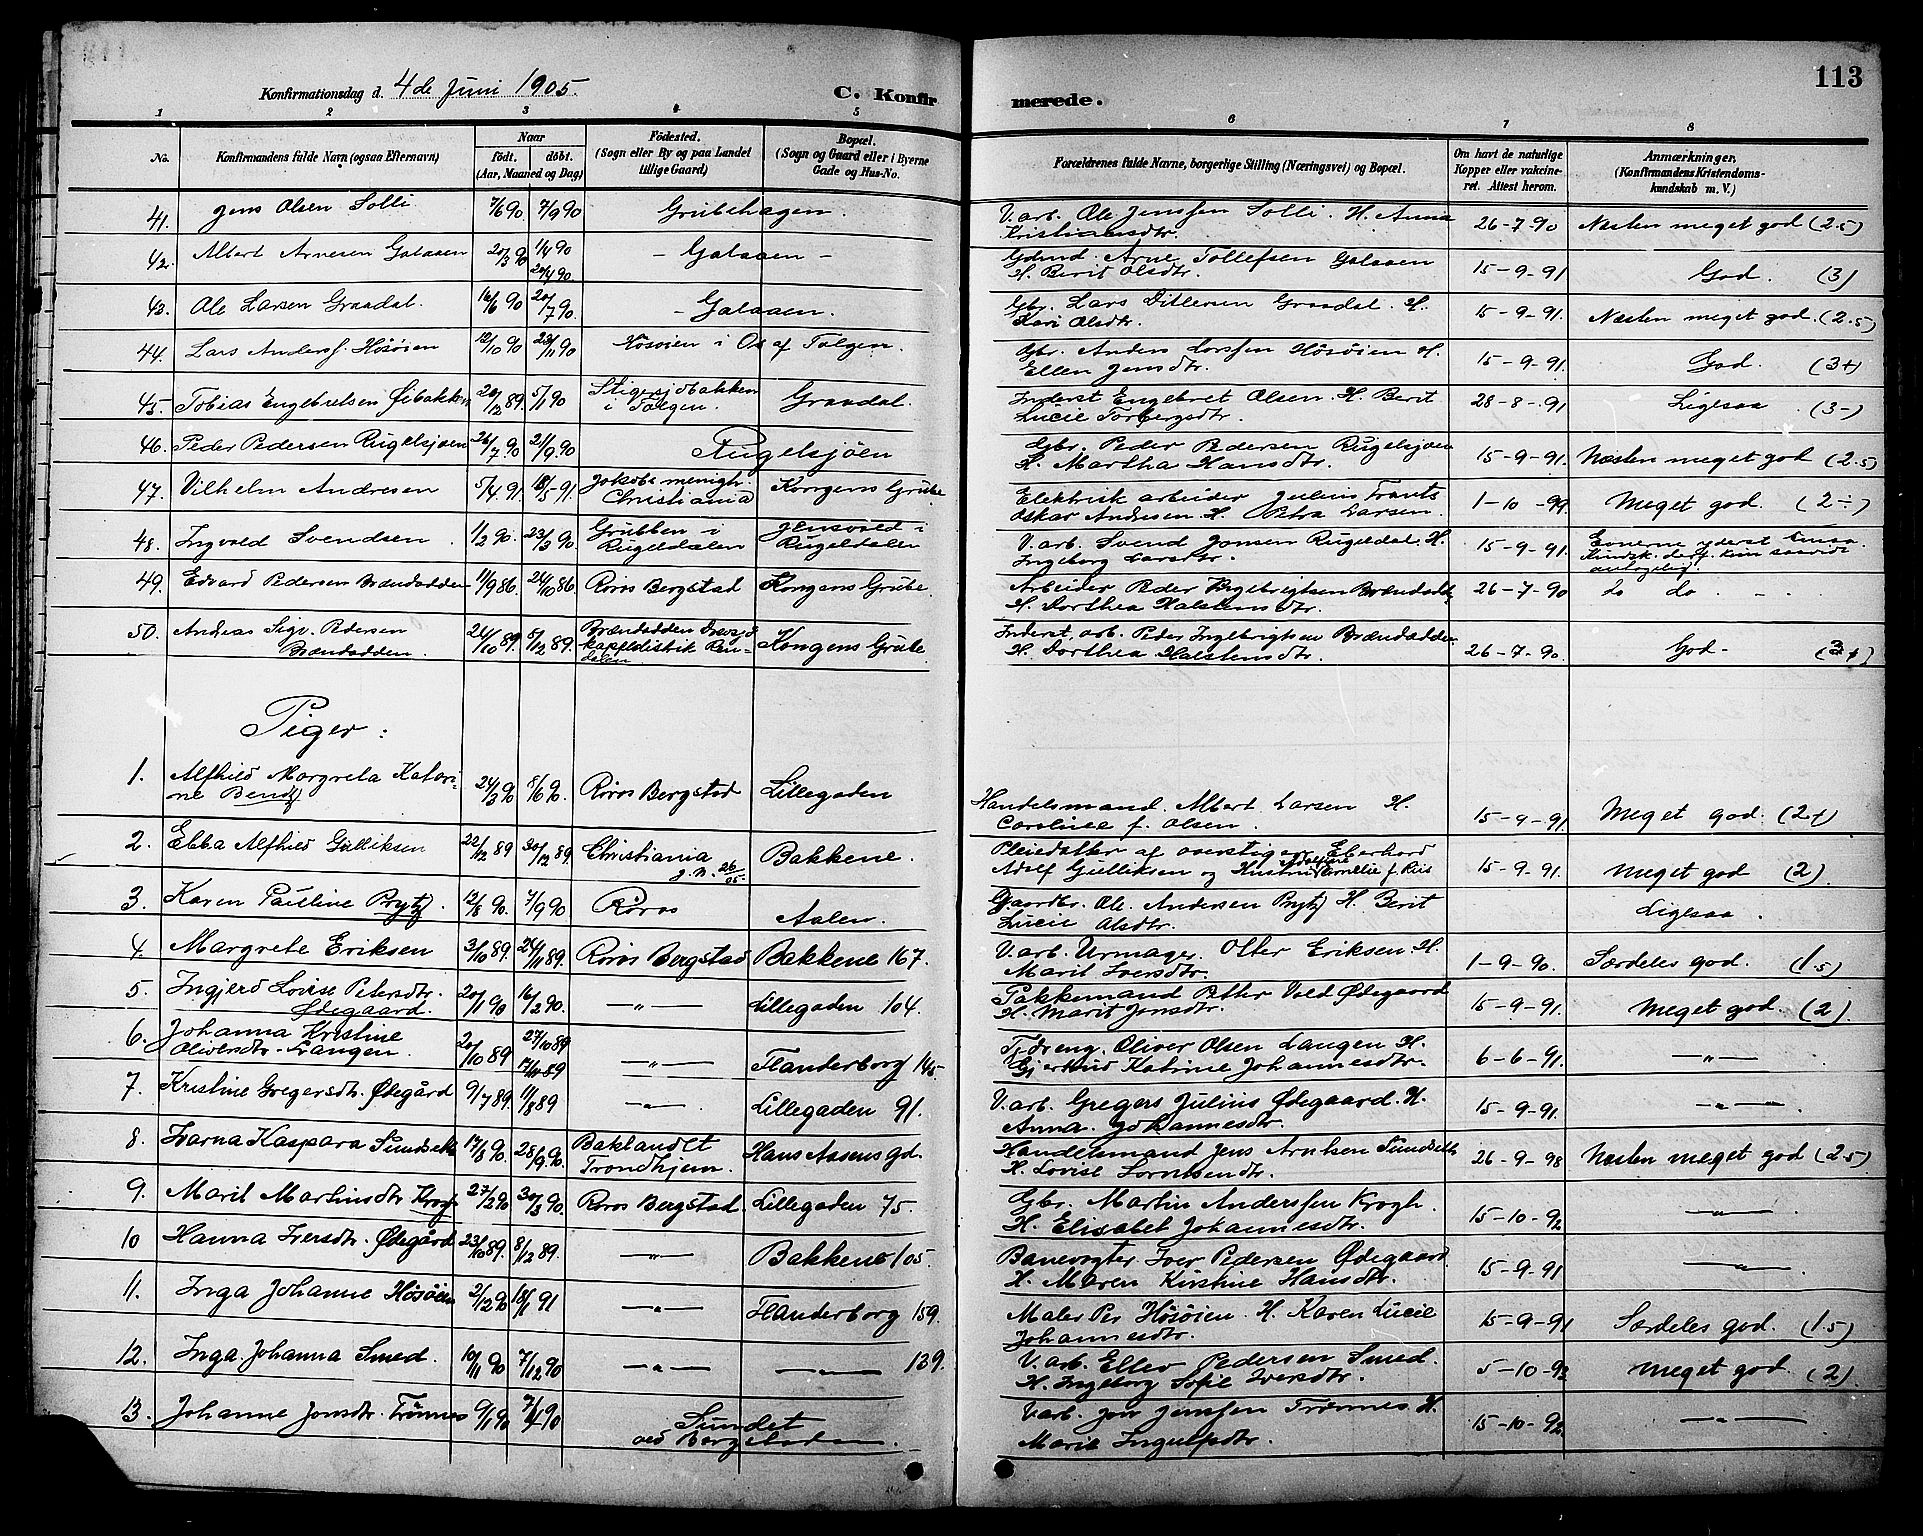 113
Konfirmationsdag d. 4de Juni 1905.
C. Konfirmerede.
1 2 3 4 5 6 7 8
No. Konfirmandens fulde Navn (ogsaa Efternavn) Naar født. døbt. (Aar, Maaned og Dag) Fødested. (Sogn eller By og paa Landet tillige Gaard) Bopæl. (Sogn og Gaard eller i Byerne Gade og Hus-No. Forældrenes fulde Navne, borgerlige Stilling (Næringsvei) og Bopæl. Om havt de naturlige Kopper eller vakcineret. Attest herom. Anmærkninger. (Konfirmandens Kristendomskundskab m. V.)
41. Jens Olsen Solli 7/6 90 7/9 90 Grubehagen. V. arb. Ole Jenssen Solli. H. Anna Kristiansdtr. 26-7-90 Næsten meget god (2.5)
42. Albert Arnesen Galaaen 20/3 90 1/4 90 20/4 90 - Galaaen - Arne Tollefsen Galaaen H. Berit Olsdtr. 15-9-91 God. (3)
43. Ole Larsen Graadal. 16/6 90 20/7 90. - Galaaen. Gbr. Lars Ditlevsen Graadal. H. Kari Olsdtr. 15-9-91. Næsten meget god. (2.5)
44. Lars Anderss. Høsøien 12/10 90 23/11 90 Høsøien i Os af Tolgen. Gbr. Anders Larssen Høsøien H. Ellen Jensdtr. 15-9-91. God. (3+)
45. Tobias Engebretsen Øibakken 20/12 89. 5/1 90 i Tolgen. Graadal. Inderst Engebret Olsen. H. Berit Lucie Torbergsdtr. 28-8-91 Ligesaa. (3-)
46. Peder Pedersen Rugelsjøen 26/7 90 21/9 90 Rugelsjöen Gbr. Peder Pedersen Rugelsjøen H. Martha Hansdtr. 15-9-91. Næsten meget god (2.5)
47. Vilhelm Andresen 5/4 91. 18/5-91. Jakobs menigh. Christiania Kongens Grube Elektrisk arbeider Julius Frants Oskar Andresen. H. Petra Larsen. 1-10-99 Meget god. (2÷)
48. Ingvald Svendsen 1/2 90. 23/3 90 Grubben i Rugeldalen Jensvold i Rugeldalen V. arb. Svend Jonsen Rugeldal. H. Ingeborg Larsdtr. 15-9-91. Evnerne yderst Kundsk. derf. kun saavidt antagelig.
49. Edvard Pedersen Brændadden 11/9 86. 24/10 86 Røros Bergstad Kongens Grube. Arbeider Peder Ingebrigtsen Brændadd. H. Dorthea Halstensdtr. 26-7-90 do do . - -
50. Andreas Sigv. Pedersen Brændadden. 24/10 89. 8/12 89. Brændadden kapeldistrik Rendalen Kongens Grube Inderst, arb. Peder Ingebrigtsen Brændadden H. Dorthea Halstensdtr. 26-7-90. God- (3+)
Piger:
1. Alfhild Margreta Katarine Bendz 24/3 90 8/6 90. Røros Bergstad Lillegaden Handelsmand. Albert Larsen H. Caroline f. Olsen. 15-9-91 Meget god. (2+)
2. Ebba Alfhild Gulliksen 22/12 89 30/12 89 Christiania Bakkene. Pleiedatter af overstiger Eberhard Adolf Gulliksen og Kristine Emelie f. Riis 15-9-91. Meget god (2).
3. Karen Pauline Prytz. 12/8 90. 7/9 90 Røros Aalen. Gaardbr. Ole Andersen Prytz H. Berit Lucie Olsdtr. Ligesaa.
4. Margrete Eriksen 3/10 89. 24/11 89. Røros Bergstad Bakkene 167. V. arb. Urmager. Otter Eriksen. H. Marit Iversdtr. 1-9-90. Særdeles god. (1.5)
5. Ingjerd Lovise Petersdtr. Ødegaard. 20/1 90 16/2 90. —"— Lillegaden 104. Pakkemand Petter Vold Ødegaard H. Marit Jonsdtr. 15-9-91. Meget god. (2)
6. Johanna Kristine Oliversdtr. Langen. 20/10 89 27/10 89 17/11 89 —"— Flanderborg 145. Oliver Olsen Langen H. Gjertrud Katrine Johannesdtr. 6-6-91. —"—
7. Kristine Gregersdtr. Ødegård 9/7 89. 11/8 89 —"— Lillegaden 91. V. arb. Gregers Julius Ødegaard. H. Anna. Johannesdtr. 15-9-91. —"—
8. Kaspara Sundseth 17/8 90. 28/9 90. Baklandet Trondhjem. Hans Aasens gd. Handelsmand Jens Arntsen Sundseth H. Lovise Lorntsendtr. 26-9-98 Næsten meget god (2.5)
9. Marit Martinsdtr. Krogh 27/2 90 30/3 90. Røros Bergstad Lillegaden 75. Gbr. Martin Anderssen Krogh. H. Elisabet Johannesdtr. 15-10-92 —"—
10 Hanna Iversdtr. Ødegård 23/10 89. 8/12 89. —"— Bakkene 105. Banevogter Iver Pedersen Ødegaard. H. Maren Kirstine Hansdtr. 15-9-91 —"—
11. Inga Johanne Høsøien 2/12 90 18/1 91 —"— Flanderborg 159. Maler Per Høsøien. H. Karen Lucie Johannesdtr. 15-9-91 Særdeles god. (1.5)
12. Inga Johanna Smed. 10/11 90 7/12 90 —"— —— 139. V. arb. Ellev Pedersen Smed. H. Ingeborg Sofie Iversdtr. 5-10-92 Meget god. (2)
13. Johanne Jonsdtr. Trønnes 9/1 90 7/4 90 Sundet ved Bergstaden. V. arb. Jon Jenssen Trønnes H. Marie Ingulfsdtr. 15-10-92 —"—